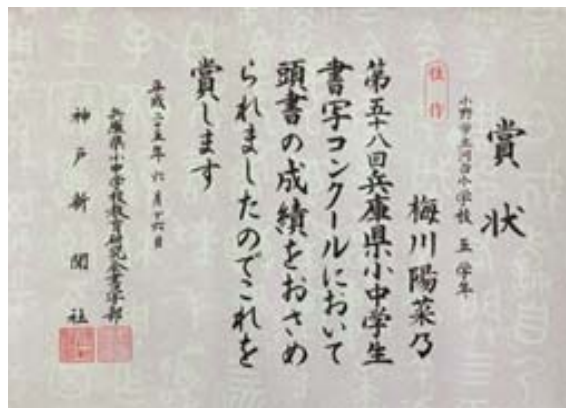 賞状
佳作
小野市立河合小学校 五 学年
梅川陽菜乃
第五十八回兵庫県小中学生
書写コンクールにおいて
頭書の成績をおさめ
られましたのでこれを
賞します
平成二十五年 六月十六日
兵庫県小中学校教育研究会書写部
神戸新聞社